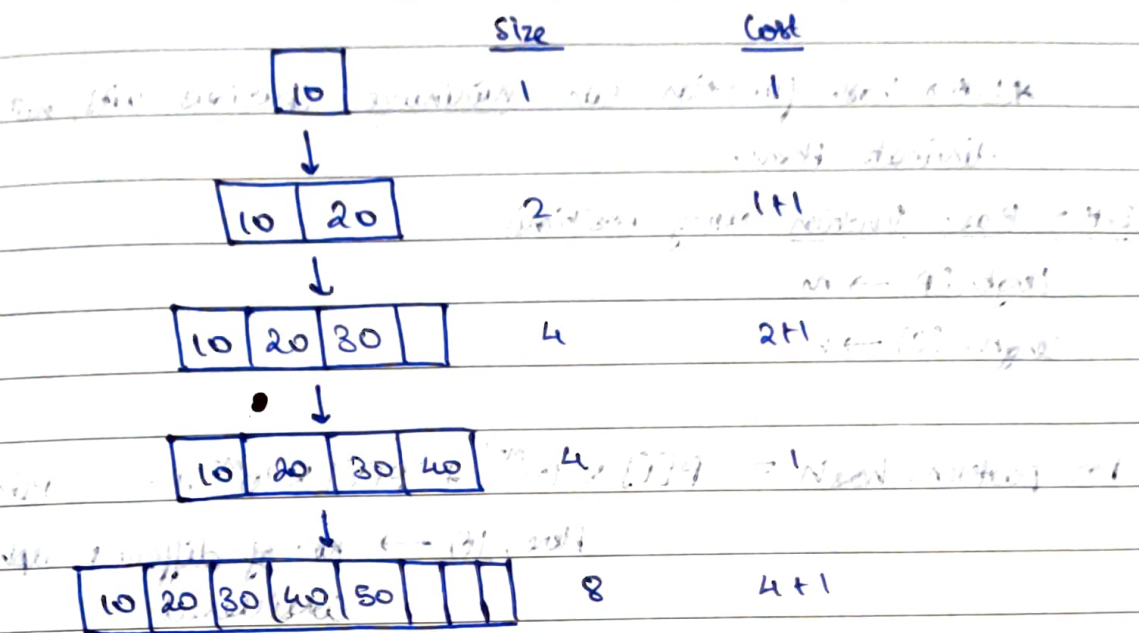 Size Cost
10 1 1
10 20 2 1+1
10 20 30 4 2+1
10 20 30 40 4 1
10 20 30 40 50 8 4+1